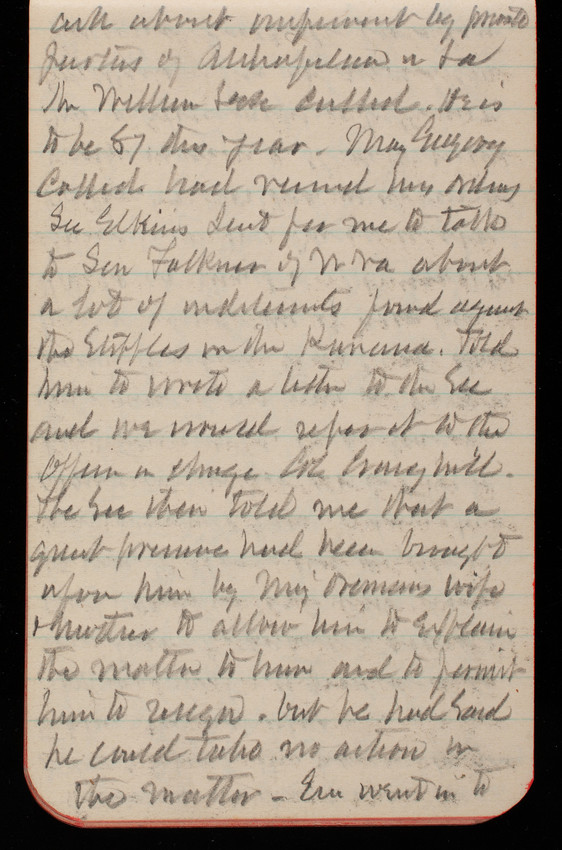 ask about improvement by private
parties of Atchafalaya in La
Mr William called. He is
to be 87 this year. May Gregory
Called. had received his orders
Sec Elkins Sent for me to talk
to Sen Faulkner of W Va about
a lot of indictments found against
the on the Kanawha. Told
him to write a letter to the Sec
and we would refer it to the
Officer in charge Col Craighill.
The Sec then told me that a
great pressure had been brought
upon him by Maj wife
& mother to allow him to explain
the matter to him and to permit
him to resign. but he had Said
he could take no action in
the matter - went in to